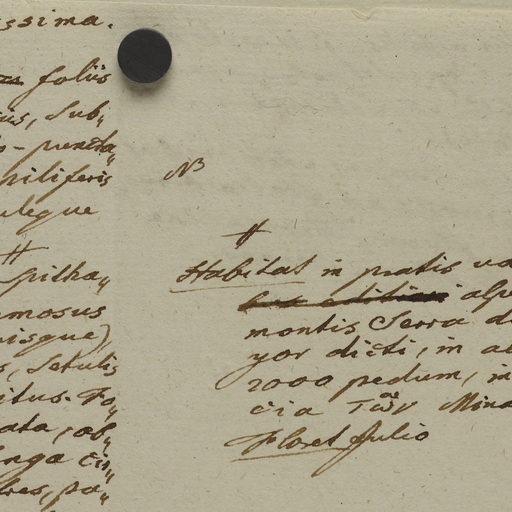 ssima.
foliis
iis, Sub„
o-puncta„
piliferis
uleque
#
Spitha„
amosus
uisque)
s, Setulis
itus. Fo„
ata, ob„
nga cii„
bres, pa„
NB
#
Habitat in pratis va
alp
montis Serra d
yor dicti, in a
2000 pedum, in
cia Mina
Floret Julio